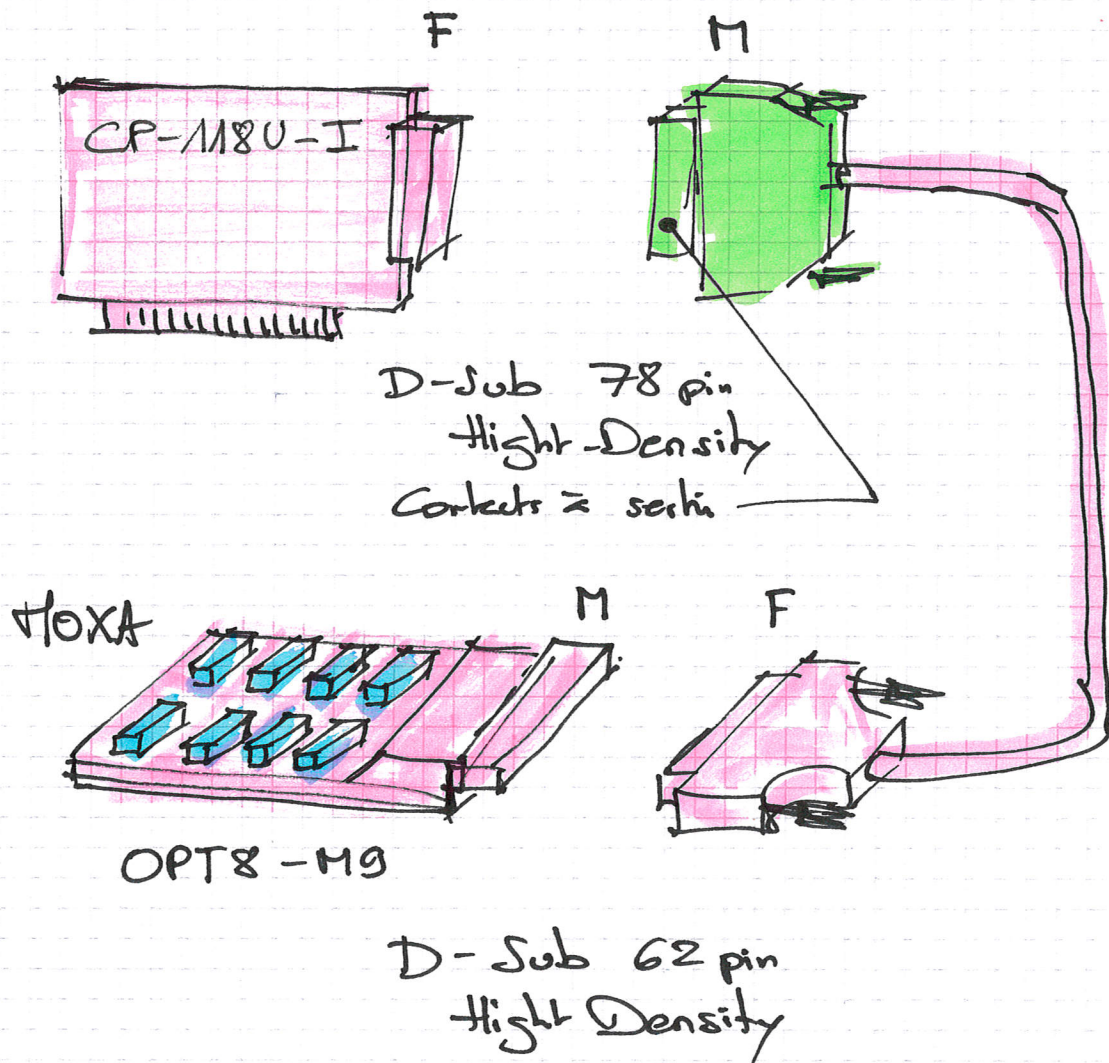 F
M
CP-118U-I
D-Sub 78 pin
Hight-Density
Contacts à sertir
MOXA
M
F
OPT8-M9
D-Sub 62 pin
Hight Density